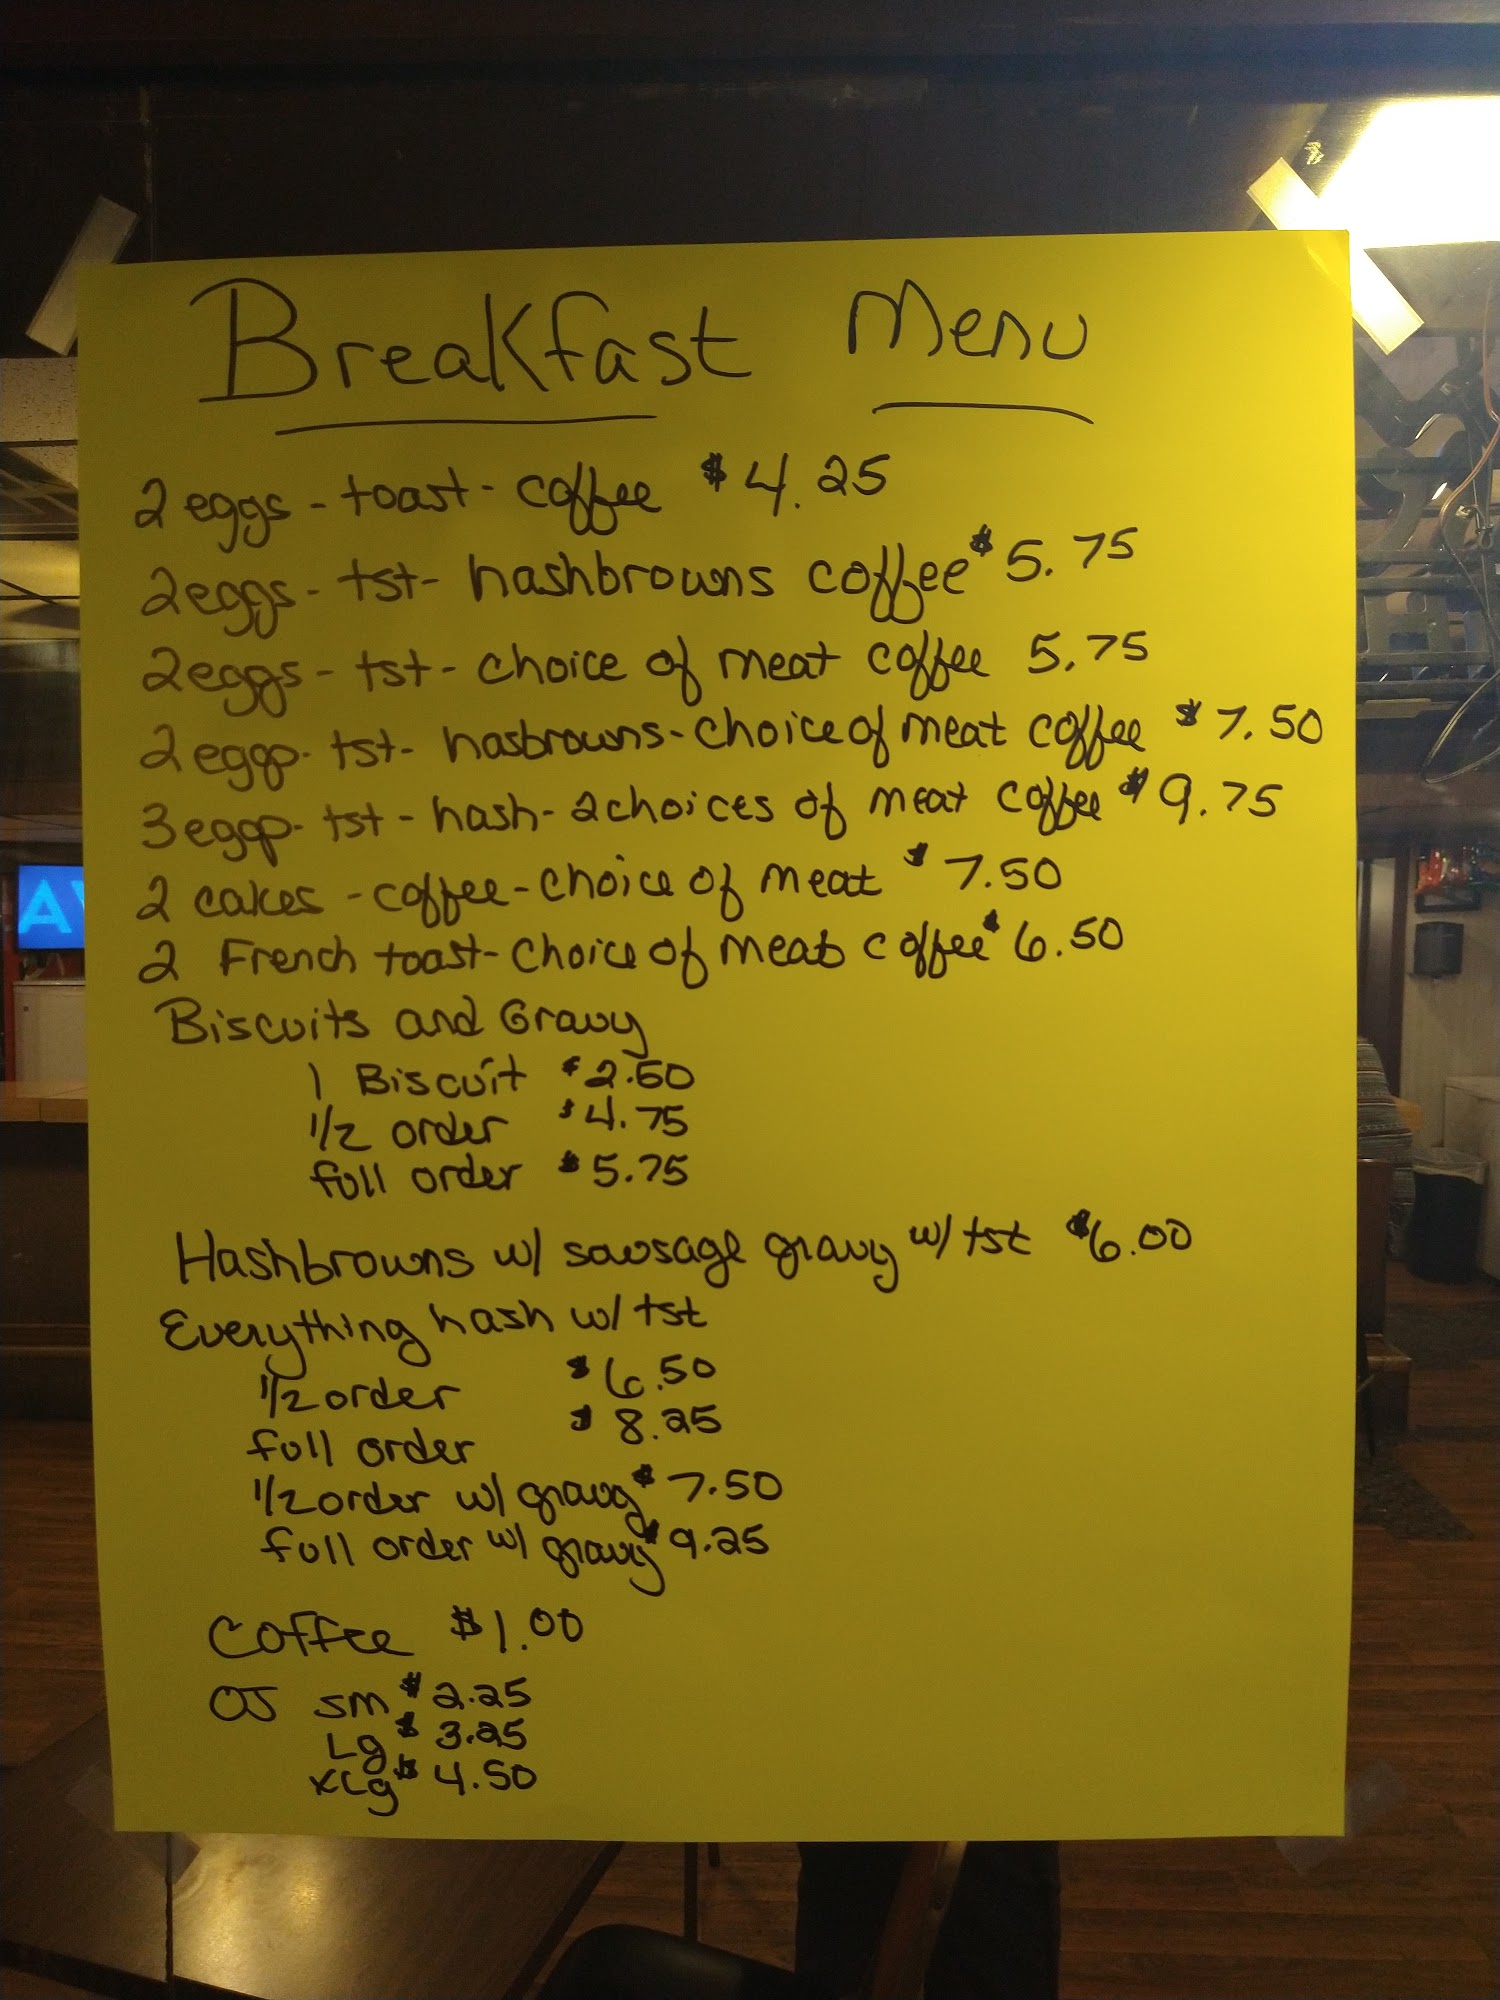 Breakfast Menu
2 eggs - toast - coffee $4.25
2 eggs - tst - hashbrowns coffee $5.75
2 eggs - tst - choice of meat coffee 5.75
2 eggs - tst - hasbrowns - choice of meat coffee $7.50
3 eggs - tst - hash - 2 choices of meat coffee $9.75
2 cakes - coffee - choice of meat $7.50
2 French toast - choice of meat coffee $6.50
Biscuits and Gravy
1 Biscuit $2.50
1/2 order $4.75
full order $5.75
Hashbrowns w/ sausage gravy w/ tst $6.00
Everything hash w/ tst
1/2 order $6.50
full order $8.25
1/2 order w/ gravy $7.50
full order w/ gravy $9.25
Coffee $1.00
OJ sm $2.25
Lg $3.25
XLg $4.50